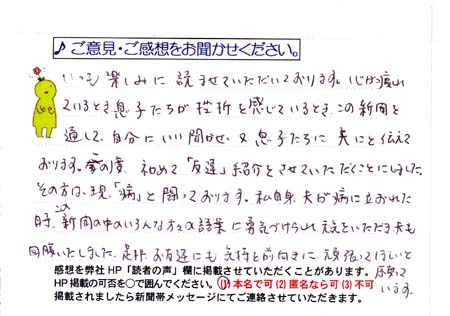 ♪ ご意見・ご感想をお聞かせください。
いつも楽しみに読ませていただいております。心が疲れ
ているとき息子たちが挫折を感じているとき、この新聞を
通して、自分にいい聞かせ、又息子たちに夫にと伝えて
おります。この度、初めて「友達」紹介をさせていただくことにしました。
その方は、現、「病」と闘っております。私自身、夫が病に立おれた
時、この新聞の中のいろんな方々の語葉に勇気づけられ、元気をいただき夫も
回復いたしました。是非、お友達にも気持を前向きに頑張ってほしいと
願って
います。
感想を弊社HP「読者の声」欄に掲載させていただくことがあります。
HP掲載の可否を○で囲んでください。(1)本名で可 (2)匿名なら可 (3)不可
掲載されましたら新聞帯メッセージにてご連絡させていただきます。